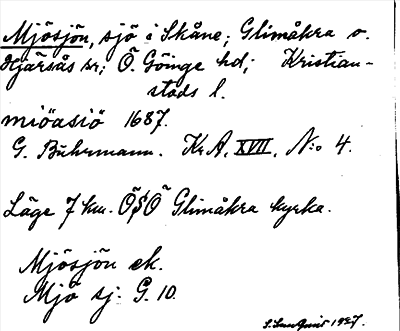 Mjösjön, sjö i Skåne; Glimåkra o.
Hjärsås sr; Ö. Göinge hd; Kristian-
stads l.
miöasiö 1687.
G. Buhrmann. Kr.A. XVII, N:o 4.
Läge 7 km. ÖSÖ Glimåkra kyrka.
Mjösjön ek.
Mjö sj. G. 10.
S. Lundquist 1927.